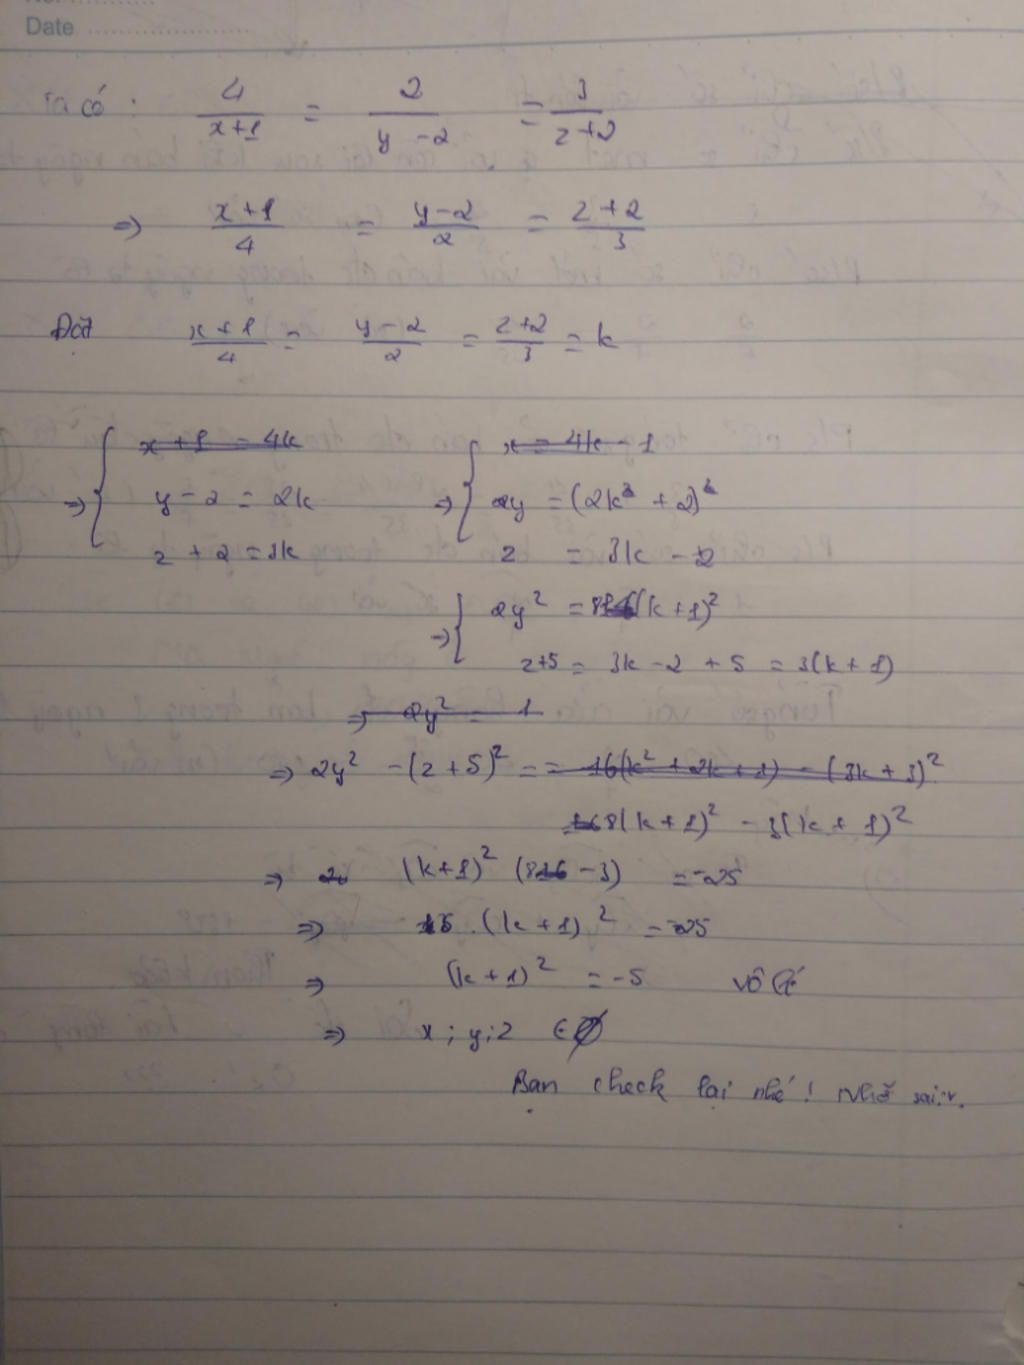 Date
Ta có : 4/(x+1) = 2/(y-2) = 3/(z+2)
=> (x+1)/4 = (y-2)/2 = (z+2)/3
Đặt (x+1)/4 = (y-2)/2 = (z+2)/3 = k
=> { x+1 = 4k => { x = 4k - 1
y - 2 = 2k 2y = (2k + 2)²
z + 2 = 3k z = 3k - 2
=> { 2y² = 8(k+1)²
z+5 = 3k - 2 + 5 = 3(k+1)
=> 2y² = 1
=> 2y² - (z+5)² = = 16(k² + 2k + 1) - (3k + 3)²
8(k+1)² - 3(k+1)²
=> (k+1)² (8 - 3) = -25
=> 5 . (k+1)² = -25
=> (k+1)² = -5 vô lí
=> x ; y ; z ∈ ∅
Bạn check lại nhé ! Nhỡ sai :v.